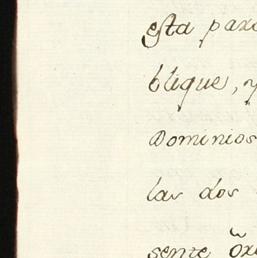 esta para
blique, y
Dominios
las dos
sente Õr